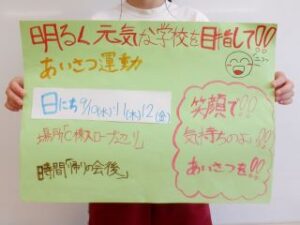 明るく元気な学校を目指して!!
あいさつ運動
日にち 9/10(水)11(木)12(金)
場所「C棟スロープ
時間「帰りの会後」
笑顔で!!
気持ちのよい!!
あいさつを!!